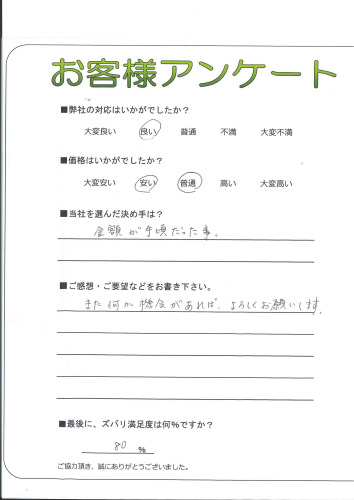 お客様アンケート
■弊社の対応はいかがでしたか?
大変良い 良い 普通 不満 大変不満
■価格はいかがでしたか?
大変安い 安い 普通 高い 大変高い
■当社を選んだ決め手は?
金額が手頃だった事。
■ご感想・ご要望などをお書き下さい。
また何か機会があれば、よろしくお願いします。
■最後に、ズバリ満足度は何%ですか?
80 %
ご協力頂き、誠にありがとうございました。